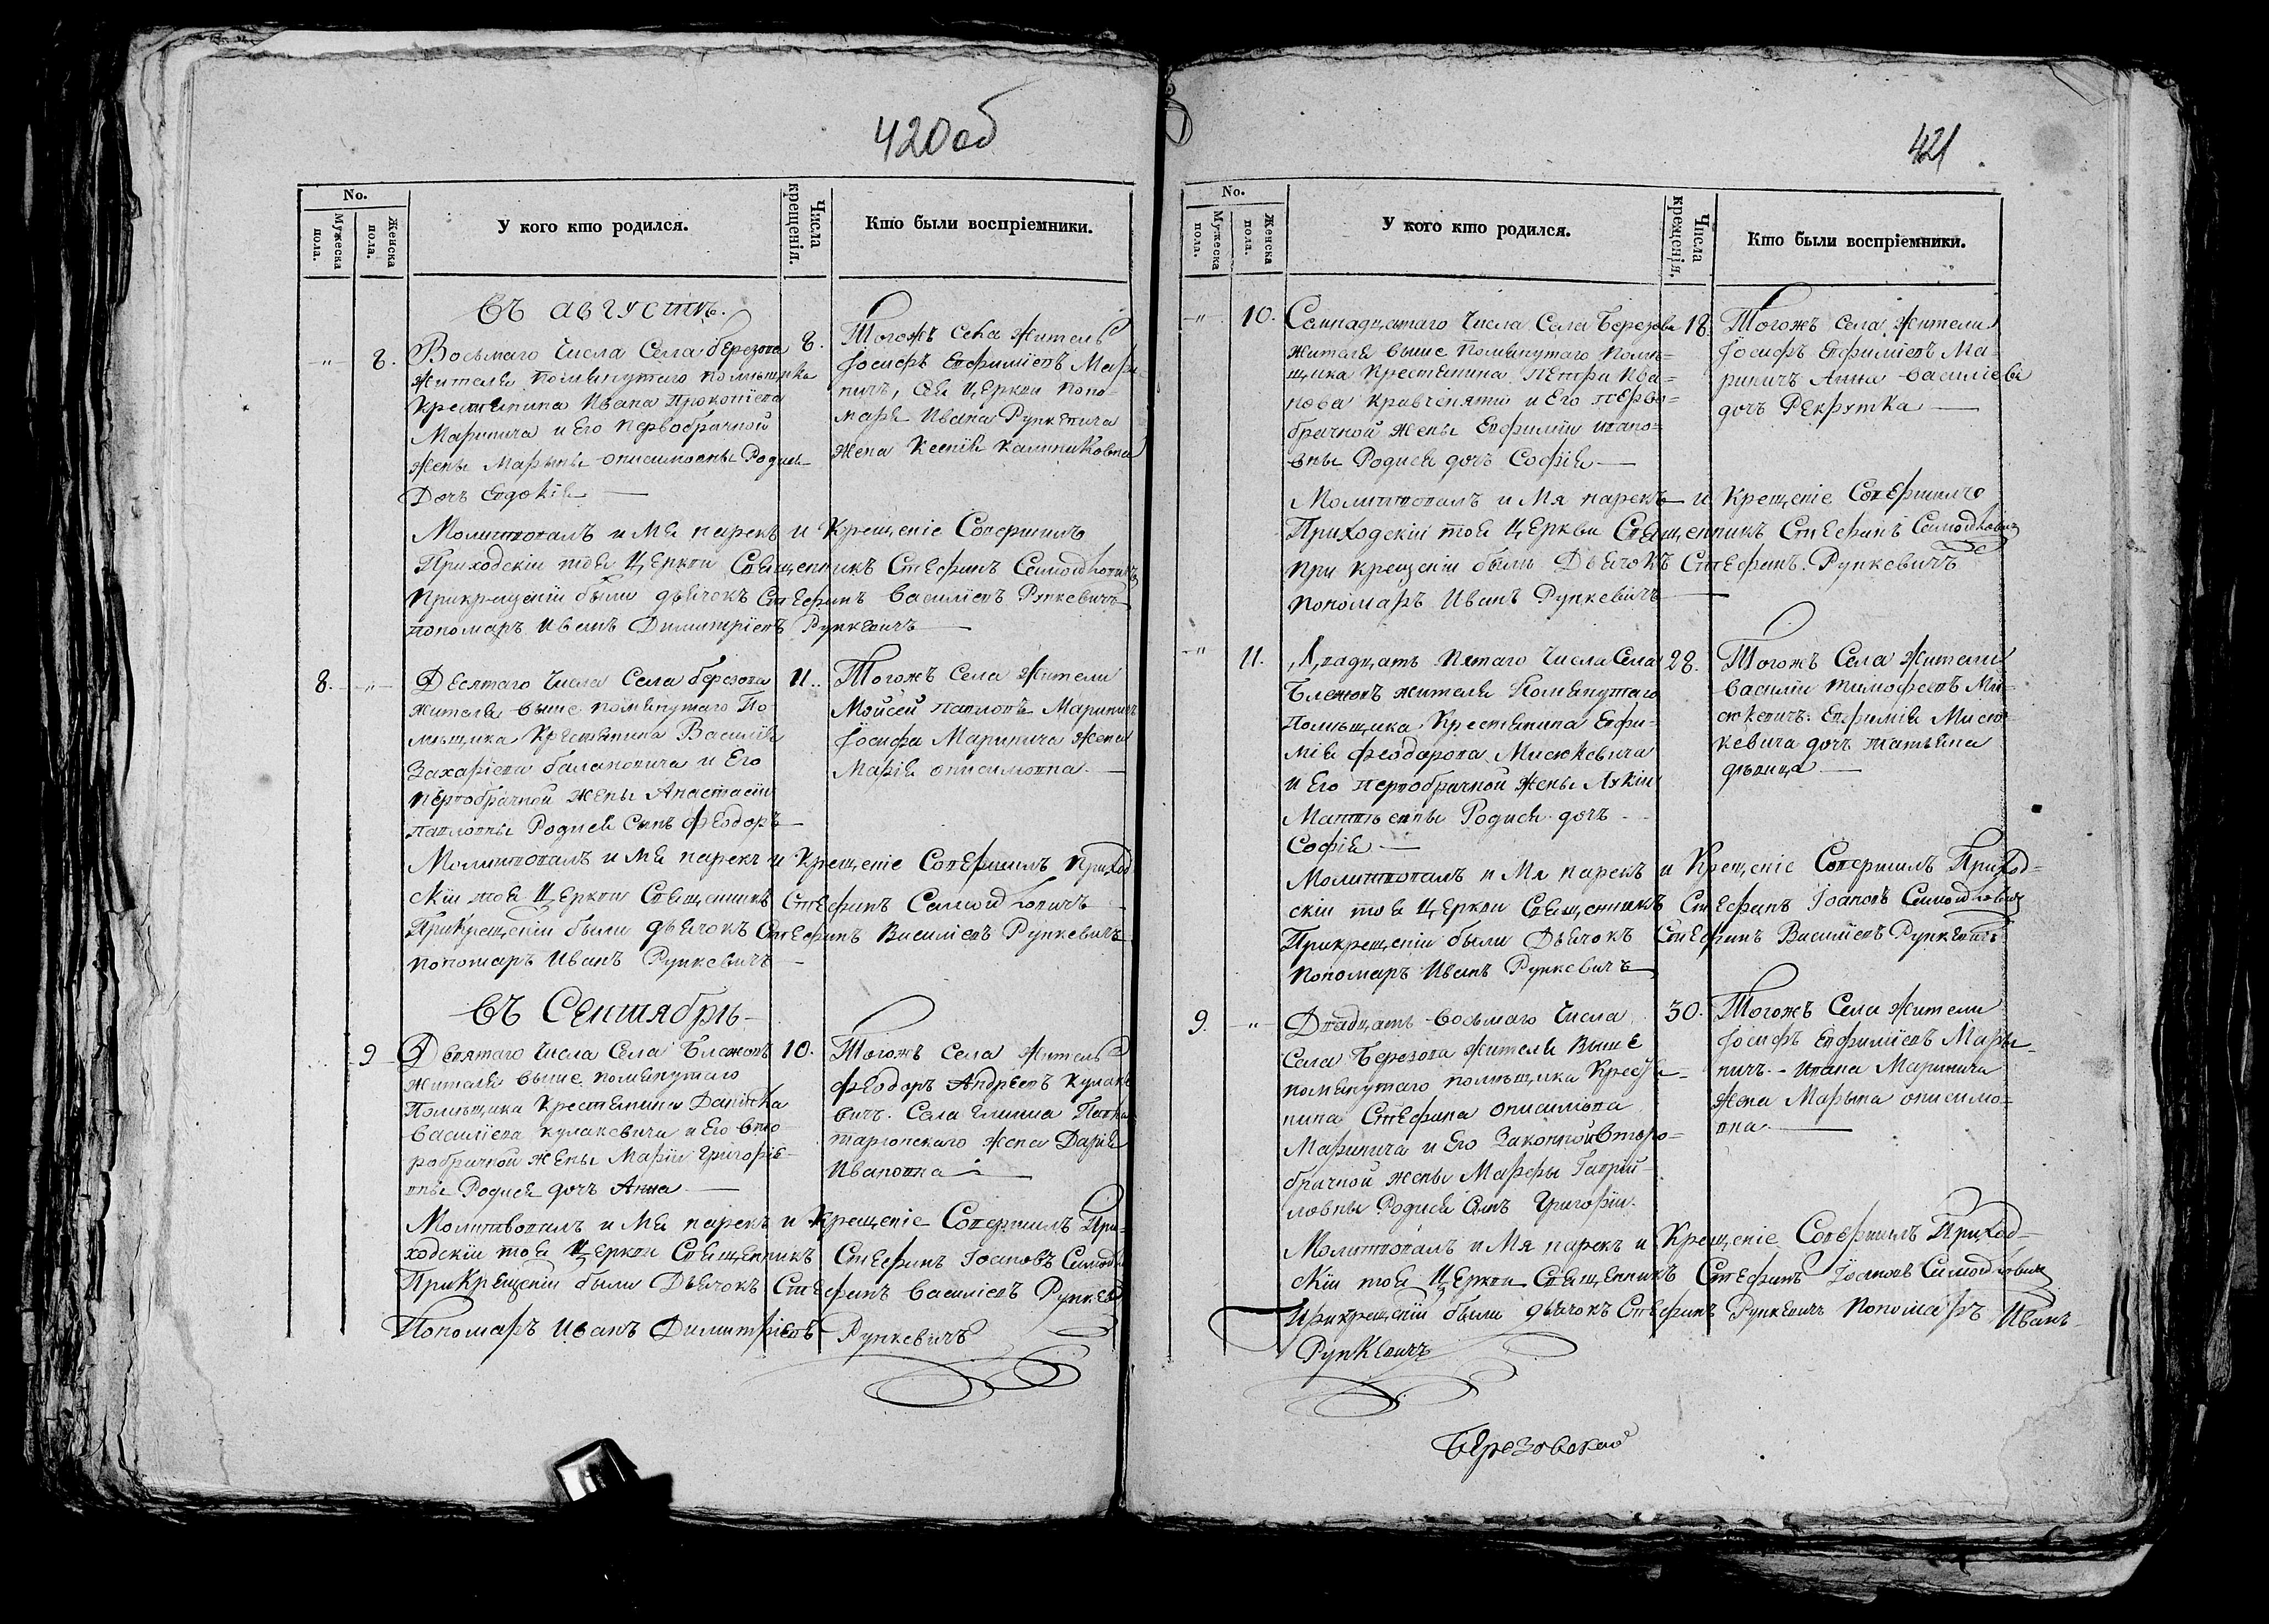 420 об
No.
Мужеска пола.
Женска пола.
У кого кто родился.
Числа крещенія.
Кто были воспріемники.
Въ августѣ.
" 8. 8.
Восьмаго Числа Села березова
жителя помянутаго помѣщика
крестянина Ивана Прокопіева
Маринича и Его первобрачной
жены Марыны онисимовны Родися
Дочъ евдокія
Тогожъ села житель
Іосифъ Евфиміевъ Мари
ничъ, сея Церкви поно-
маря Ивана Рункевича
жена Ксенія калиниковна
Молитвовалъ и Мя нарекъ и Крещеніе Совершилъ
Приходскій тоя Церкви Священникъ Стефанъ Самойловичъ
При крещеніи были дьячокъ Стефанъ Василіевъ Рункевичъ
пономаръ Иванъ Димитріевъ Рункевичъ
8. " 11.
Десятаго Числа Села березова
жителя выше помянутаго По
мѣщика Крестянина Василія
Захаріева балановича и Его
первобрачной жены Анастасіи
павловны Родися Сынъ Феодоръ
Тогожъ Села жители
Мойсей павловъ Мариничъ
Іосифа Маринича жена
Марія онисимовна
Молитвовалъ и Мя нарекъ и Крещеніе Совершилъ приход
скій тоя Церкви Священникъ Стефанъ Самойловичъ
При Крещеніи были дьячокъ Стефанъ Василіевъ Рункевичъ
пономаръ Иванъ Рункевичъ
Въ Сентябрѣ
9 10.
Девятаго Числа Села Бележовъ
жителя выше помянутаго
Помѣщика крестянина Данилка
василіева кулаковича и Его вто
робрачной жены Маріи григоріе-
вны Родися дочъ Анна
Тогожъ села житель
Феодоръ Андреевъ кулако
вичъ. Села глинна
жена Дарія
Ивановна
Молитвовалъ и Мя нарекъ и Крещеніе Совершилъ При-
ходскій тоя Церкви Священникъ Стефанъ Іоановъ Самойло
При Крещеніи были Дьячокъ Стефанъ василіевъ Рункев
Пономаръ Иванъ Димитріевъ Рункевичъ
421
No.
Мужеска пола.
Женска пола.
У кого кто родился.
Числа крещенія.
Кто были воспріемники.
" 10. 18.
Семнадцатаго Числа Села Березова
жителя выше помянутаго помѣ-
щика крестянина Петра Ива-
нова кравченяти и Его перво-
брачной жены Евфиміи ивано-
вны Родися дочъ Софія
Тогожъ села жители
Іосифъ Евфиміевъ Ма-
риничъ Анна василіева
дочъ Рекрутка
Молитвовалъ и Мя нарекъ и Крещеніе Совершилъ
Приходскій тоя Церкви Священникъ Стефанъ Самойловичъ
при крещеніи были Дьячокъ Стефанъ Рункевичъ
пономаръ Иванъ Рункевичъ
" 11. 28.
Двадцать пятаго Числа Села
Бележовъ жителя помянутаго
помѣщика крестянина Евфи-
мія феодорова Мисюкевича
и Его первобрачной жены Лукіи
Матвеевны Родися дочъ
Софія
Тогожъ Села жители
василій тимофеевъ Ми-
сюкевичъ. Евфимія Мисю-
кевича дочъ татьяна
дѣвица
Молитвовалъ и Мя нарекъ и Крещеніе Совершилъ Приход-
скій тоя Церкви Священникъ Стефанъ Іоановъ Самойловичъ
При крещеніи были Дьячокъ Стефанъ Василіевъ Рункевичъ
пономаръ Иванъ Рункевичъ
9. " 30.
Двадцать восьмаго Числа
Села Березова жителя выше
помянутаго помѣщика Крестя-
нина Стефана онисимова
Маринича и Его Законной второ-
брачной жены Марфы Гаврий-
ловны Родися Сынъ григорій.
Тогожъ Села жители
Іосифъ Евфиміевъ Мари-
ничъ. Ивана Маринича
жена Марына онисимо-
вна
Молитвовалъ и Мя нарекъ и Крещеніе Совершилъ Приход-
скій тоя Церкви Священникъ Стефанъ Іоановъ Самойловичъ
При крещеніи были дьячокъ Стефанъ Рункевичъ пономаръ Иванъ
Рункевичъ
Березовской